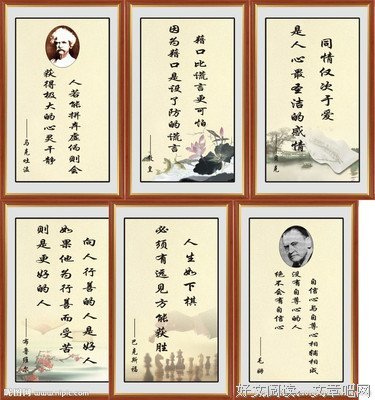 人若能摒弃虚伪则会
获得极大的心灵平静
——马克吐温
藉口比谎言更可怕
因为藉口是设了防的谎言
——教皇
同情仅次于爱
是人心最圣洁的感情
克
向人行善的人是好人
如果他为行善而受苦
则是更好的人
——布鲁雅尔
人生如下棋
必须有远见方能获胜
——巴克斯福
自信心与自尊心相辅相成
没有自尊心的人
绝不会有自信心
——毛姆
昵图网 www.nipic.com
好文阅读…文章吧网